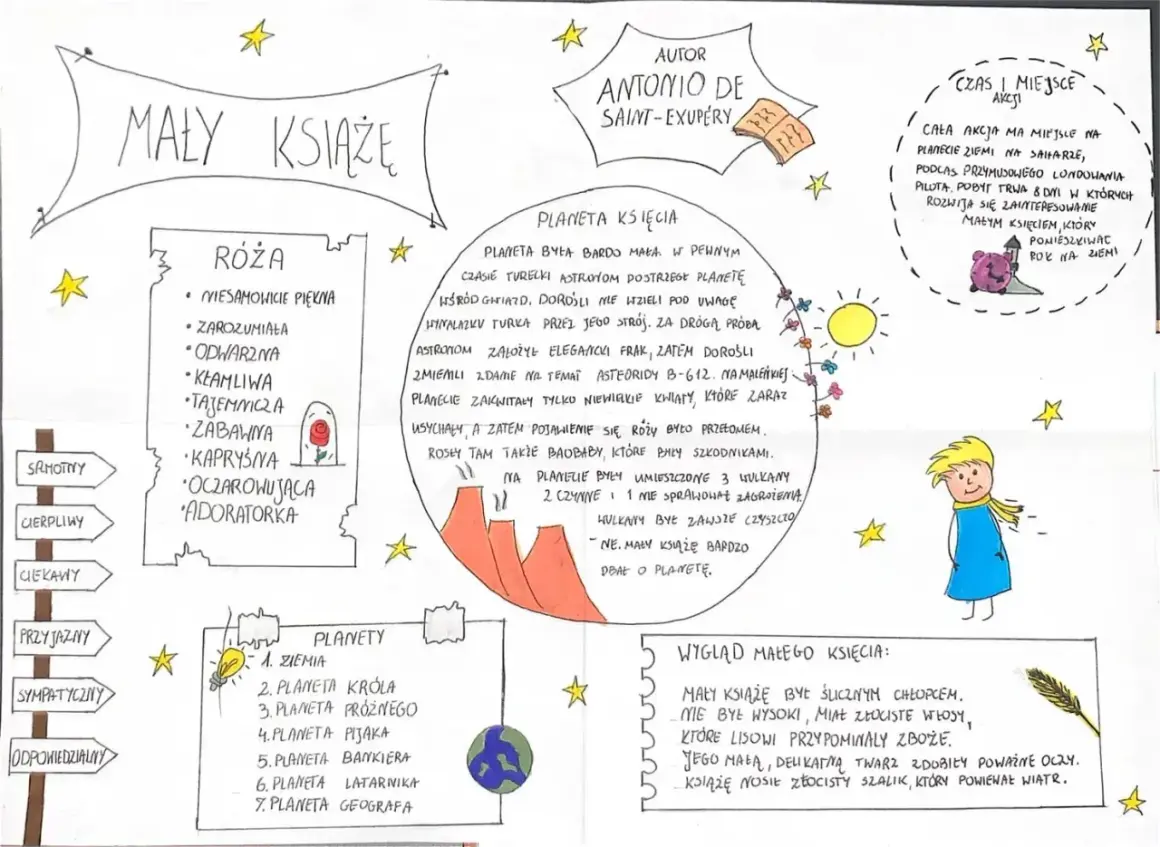 MAŁY KSIĄŻĘ
AUTOR
ANTONIO DE
SAINT-EXUPÉRY
CZAS I MIEJSCE
AKCJI
CAŁA AKCJA MA MIEJSCE NA
PLANECIE ZIEMI NA SAHARZE,
PODCAS PRZYMUSOWEGO LONDOWANIA
PILOTA. POBYT TRWA 8 DNI W KTÓRYCH
ROZWIJA SIĘ ZAINTERESOWANIE
MAŁYM KSIĘCIEM, KTÓRY
POMIESZKIWAĆ
ROK NA ZIEMI
RÓŻA
• NIESAMOWICIE PIĘKNA
• ZAROZUMIAŁA
• ODWAŻNA
• KŁAMLIWA
• TAJEMNICZA
• ZABAWNA
• KAPRYŚNA
• OCZAROWUJĄCA
• ADORATORKA
PLANETA KSIĘCIA
PLANETA BYŁA BARDO MAŁA. W PEWNYM
CZASIE TURECKI ASTRONOM DOSTRZEGŁ PLANETĘ
WŚRÓD GWIAZD. DOROŚLI NIE WZIELI POD UWAGĘ
WYNALAZKU TURKA PRZEZ JEGO STRÓJ. ZA DRÓGĄ PRÓBĄ
ASTRONOM ZAŁOŻYŁ ELEGANCKI FRAK, ZATEM DOROŚLI
ZMIENILI ZDANIE NA TEMAT ASTEORIDY B-612. NA MALEŃKIEJ
PLANECIE ZAKWITAŁY TYLKO NIEWIELKIE KWIATY, KTÓRE ZARAZ
USYCHAŁY, A ZATEM POJAWIENIE SIĘ RÓŻY BYŁO PRZEŁOMEM.
ROSŁY TAM TAKŻE BAOBABY, KTÓRE BYŁY SZKODNIKAMI.
NA PLANECIE BYŁY UMIESZCZONE 3 WULKANY
2 CZYNNE I 1 NIE SPRAWOWAŁ ZAGROŻENIA.
WULKANY BYŁ ZAWSZE CZYSZCZO
- NE. MAŁY KSIĄŻĘ BARDZO
DBAŁ O PLANETĘ.
SAMOTNY
CIERPLIWY
CIEKAWY
PRZYJAZNY
SYMPATYCZNY
ODPOWIEDZIALNY
PLANETY
1. ZIEMIA
2. PLANETA KRÓLA
3. PLANETA PRÓŻNEGO
4. PLANETA PIJAKA
5. PLANETA BANKIERA
6. PLANETA LATARNIKA
7. PLANETA GEOGRAFA
WYGLĄD MAŁEGO KSIĘCIA:
MAŁY KSIĄŻĘ BYŁ ŚLICZNYM CHŁOPCEM.
NIE BYŁ WYSOKI, MIAŁ ZŁOCISTE WŁOSY,
KTÓRE LISOWI PRZYPOMINAŁY ZBOŻE.
JEGO MAŁĄ, DELIKATNĄ TWARZ ZDOBIŁY POWAŻNE OCZY.
KSIĄŻĘ NOSIŁ ZŁOCISTY SZALIK, KTÓRY POWIEWAŁ WIATR.